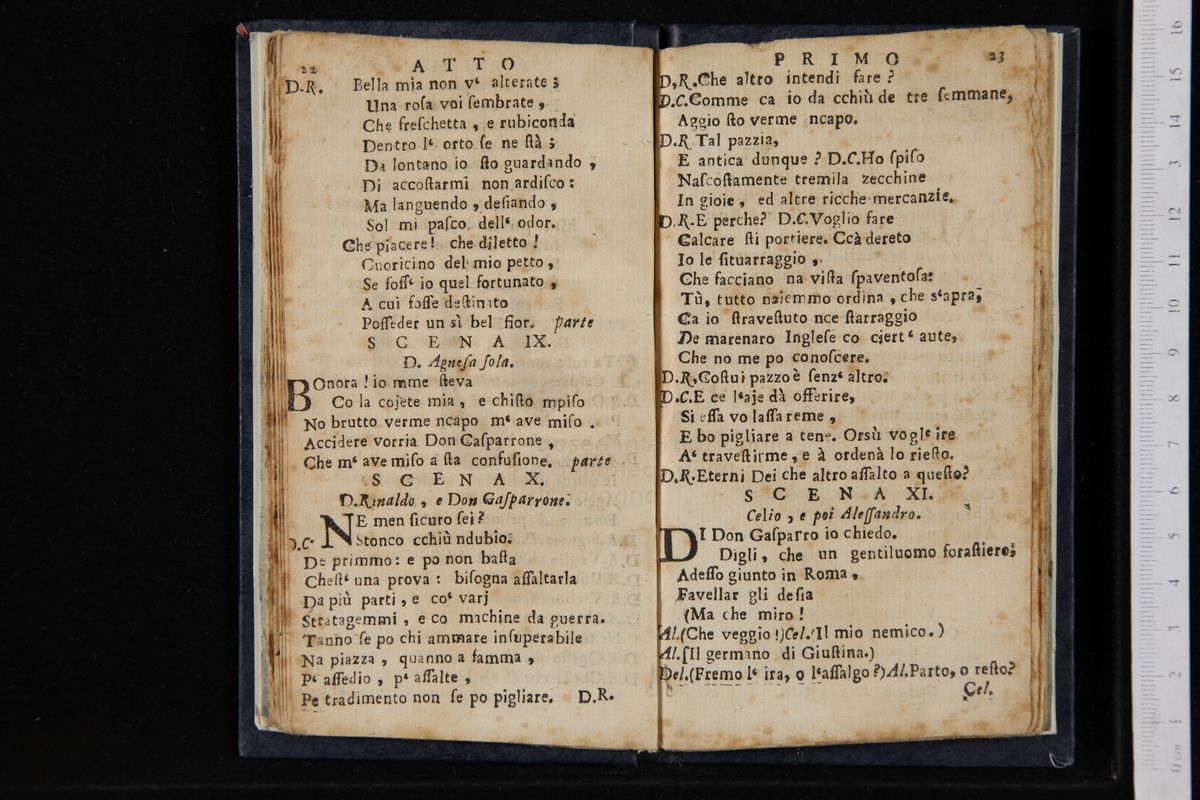 22 ATTO
D.R. Bella mia non v‘ alterate;
Una roſa voi ſembrate,
Che freſchetta, e rubiconda
Dentro l‘ orto ſe ne ſtà;
Da lontano io ſto guardando,
Di accoſtarmi non ardiſco:
Ma languendo, deſiando,
Sol mi paſco dell‘ odor.
Che piacere! che diletto!
Cuoricino del mio petto,
Se foſſ‘ io quel fortunato,
A cui foſſe deſtinato
Poſſeder un sì bel fior. parte
SCENA IX.
D. Agneſa ſola.
BOnora! io mme ſteva
Co la cojete mia, e chiſto mpiſo
No brutto verme ncapo m‘ ave miſo.
Accidere vorria Don Gaſparrone,
Che m‘ ave miſo a ſta confuſione. parte
SCENA X.
D.Rinaldo, e Don Gaſparrone.
NE men ſicuro ſei?
D.C. Stonco cchiù ndubio.
De primmo: e po non baſta
Cheſt‘ una prova: biſogna aſſaltarla
Da più parti, e co‘ varj
Stratagemmi, e co machine da guerra.
Tanno ſe po chiammare inſuperabile
Na piazza, quanno a famma,
P‘ aſſedio, p‘ aſſalte,
Pe tradimento non ſe po pigliare. D.R.
PRIMO 23
D.R.Che altro intendi fare?
D.C.Comme ca io da cchiù de tre ſemmane,
Aggio ſto verme ncapo.
D.R Tal pazzia,
E antica dunque? D.C.Ho ſpiſo
Naſcoſtamente tremila zecchine
In gioie, ed altre ricche mercanzie.
D.R.E perche? D.C.Voglio fare
Calcare ſti portiere. Ccà dereto
Io le ſituarraggio,
Che facciano na viſta ſpaventoſa:
Tù, tutto nziemmo ordina, che s‘apra,
Ca io ſtraveſtuto nce ſtarraggio
De marenaro Ingleſe co ciert‘ aute,
Che no me po conoſcere.
D.R,Coſtui pazzo è ſenz‘ altro.
D.C.E ce l‘aje dà offerire,
Si eſſa vo laſſareme,
E bo pigliare a tene. Orsù vogl‘ ire
A‘ traveſtirme, e à ordenà lo rieſto.
D.R.Eterni Dei che altro aſſalto a queſto?
SCENA XI.
Celio, e poi Aleſſandro.
DI Don Gaſparro io chiedo.
Digli, che un gentiluomo foraſtiero;
Adeſſo giunto in Roma,
Favellar gli deſia
(Ma che miro!
Al.(Che veggio!)Cel.(Il mio nemico.)
Al.(Il germano di Giuſtina.)
Del.(Fremo l‘ ira, o l‘aſſalgo?)Al.Parto, o reſto?
Cel.